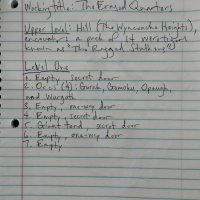 Working title: The Enraged Quarters
Upper level: Hall (The Wyncombe Heights),
encounters a pack of 14 weretigers
known as "The Ragged Stalkers"
Level One
1. Empty, secret door
2. Orcs (4): Gurnk, Gomoku, Opaugh,
and Wurgoth
3. Empty, one-way door
4. Empty, secret door
5. Giant toad, secret door
6. Empty, one-way door
7. Empty